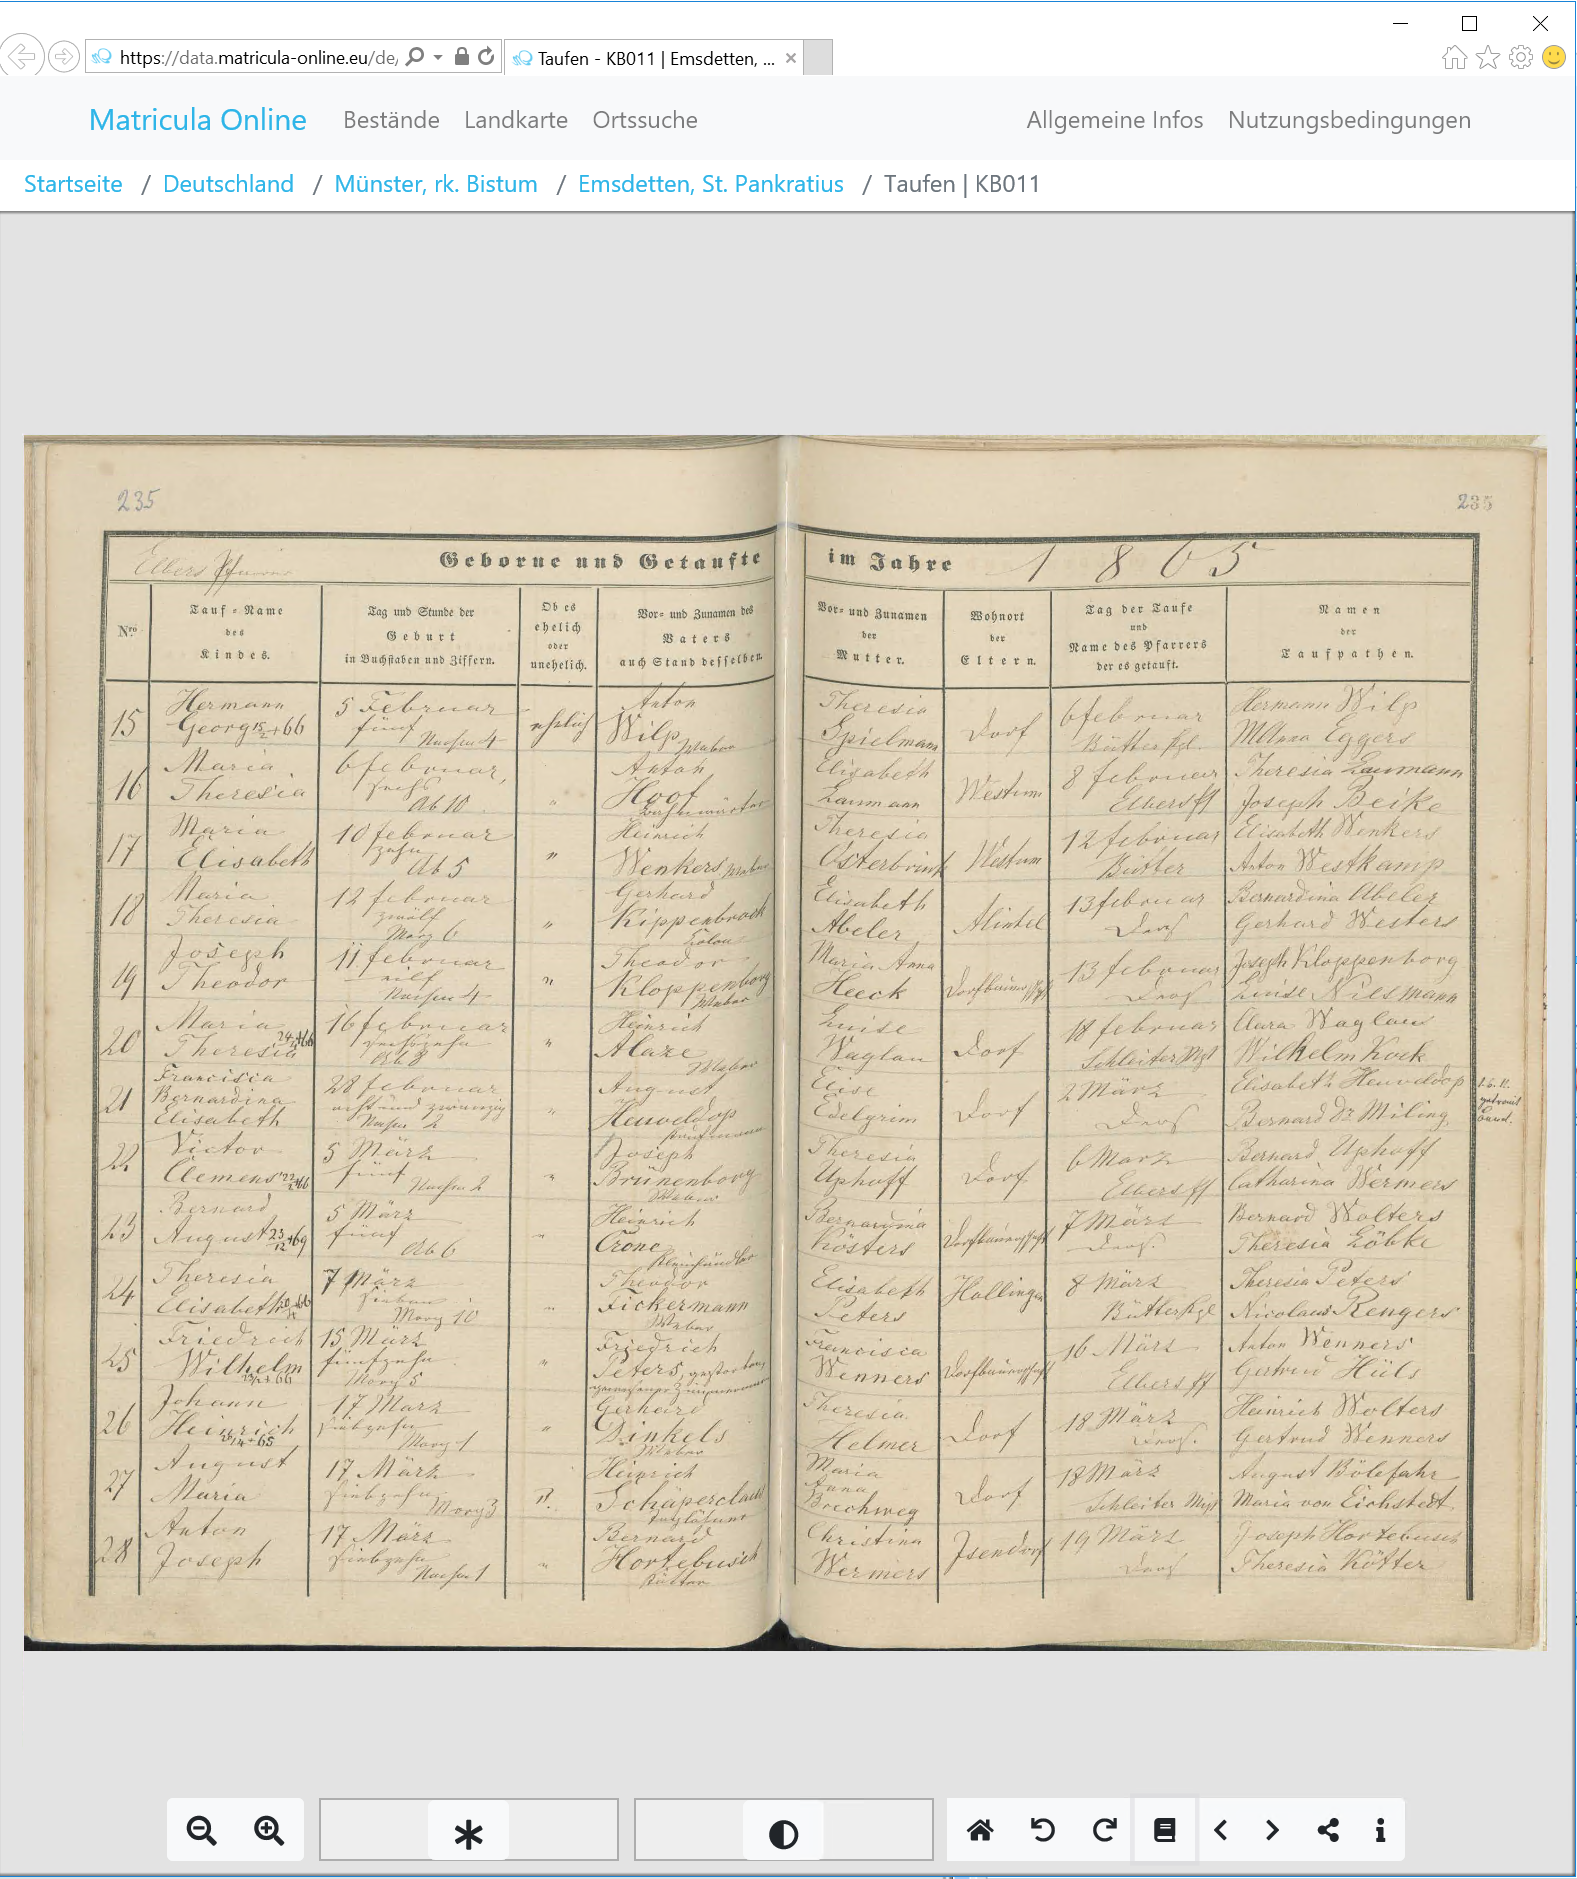 https://data.matricula-online.eu/de/
Taufen - KB011 | Emsdetten, ...
Matricula Online Bestände Landkarte Ortssuche Allgemeine Infos Nutzungsbedingungen
Startseite / Deutschland / Münster, rk. Bistum / Emsdetten, St. Pankratius / Taufen | KB011
235
235
Elbers
Geborne und Getaufte im Jahre 1865
Nro
Tauf-Name
des
Kindes.
Tag und Stunde der
Geburt
in Buchstaben und Ziffern.
Ob es
ehelich
oder
unehelich.
Vor- und Zunamen des
Vaters
auch Stand desselben.
Vor- und Zunamen
der
Mutter.
Wohnort
der
Eltern.
Tag der Taufe
und
Name des Pfarrers
der es getauft.
Namen
der
Taufpathen.
15
Hermann
Georg
5 Februar
fünf
Nachm 4
ehelich
Anton
Wilp
Weber
Theresia
Spielmann
Dorf
6 februar
Bütter
Hermann Wilp
MAnna Eggers
16
Maria
Theresia
6 februar
sechs
Ab 10
"
Anton
Hoof
Elisabeth
Laumann
Westum
8 februar
Elbers
Theresia Laumann
Joseph Beike
17
Maria
Elisabeth
10 februar
zehn
Ab 5
"
Heinrich
Wenkers Weber
Theresia
Osterbrink
Westum
12 februar
Bütter
Elisabeth Wenkers
Anton Westkamp
18
Maria
Theresia
12 februar
zwölf
Morg 6
"
Gerhard
Kippenbrock
Colon
Elisabeth
Abeler
Ahlintel
13 februar
Ders
Bernardina Abeler
Gerhard Westers
19
Joseph
Theodor
11 februar
eilf
Nachm 4
"
Theodor
Kloppenborg
Weber
Maria Anna
Heeck
Dorfbauerschaft
13 februar
Ders
Joseph Kloppenborg
Luise Nilsmann
20
Maria
Theresia
16 februar
sechszehn
Ab 8
"
Heinrich
Alaze
Weber
Luise
Waglau
Dorf
18 februar
Schleiter
Clara Waglau
Wilhelm Kock
21
Francisca
Bernardina
Elisabeth
28 februar
acht und zwanzig
Nachm 2
"
August
Heuveldop
Kaufmann
Elise
Edelgrim
Dorf
2 März
Ders
Elisabeth Heuveldop
Bernard Dr. Miling
22
Victor
Clemens
5 März
fünf
Nachm 2
"
Joseph
Brünenborg
Weber
Theresia
Uphoff
Dorf
6 Marz
Elbers
Bernard Uphoff
Catharina Wermers
23
Bernard
August
5 März
fünf
Ab 6
"
Heinrich
Crone
Kleinhändler
Bernardina
Kösters
Dorfbauerschaft
7 März
Ders.
Bernard Wolters
Theresia Löbke
24
Theresia
Elisabeth
7 März
sieben
Morg 10
"
Theodor
Fickermann
Weber
Elisabeth
Peters
Hollingen
8 März
Bütter
Theresia Peters
Nicolaus Rengers
25
Friedrich
Wilhelm
15 März
fünfzehn
Morg 5
"
Friedrich
Peters, gestorben,
Francisca
Wenners
Dorfbauerschaft
16 März
Elbers
Anton Wenners
Gertrud Hüls
26
Johann
Heinrich
17 Marz
siebzehn
Morg 1
"
Gerhard
Dinkels
Weber
Theresia
Helmer
Dorf
18 März
Ders.
Heinrich Wolters
Gertrud Wenners
27
August
Maria
17 März
siebzehn
Morg 3
Heinrich
Schäperclaus
Maria
Anna
Brechweg
Dorf
18 März
Schleiter
August Bölefahr
Maria von Eichstedt
28
Anton
Joseph
17 März
siebzehn
Nachm 1
"
Bernard
Hortebusch
Kötter
Christina
Wermers
Isendorf
19 März
Ders
Joseph Hortebusch
Theresia Kötter